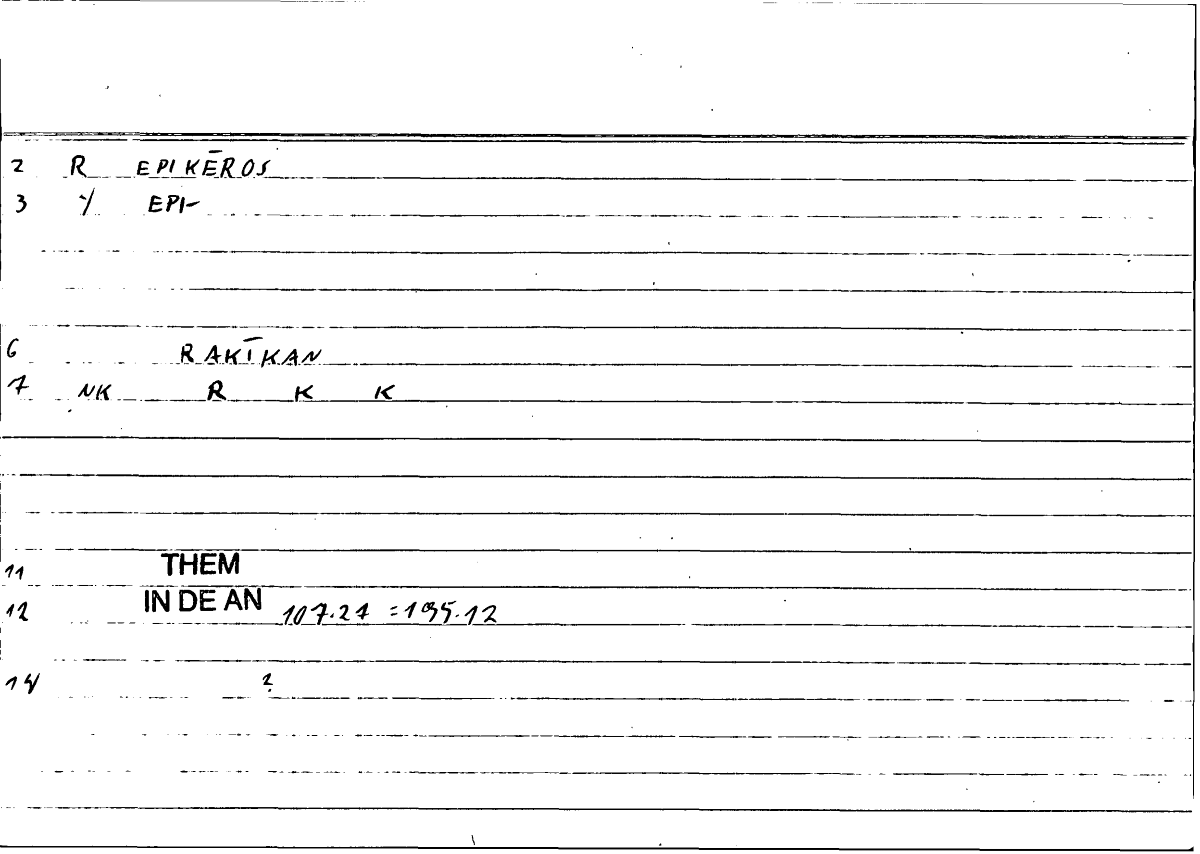 2 R EPIKĒROS
3 Y EPI-
6 RAKĪKAN
7 NK R K K
11 THEM
12 IN DE AN 107.21 = 195.12
14 ?